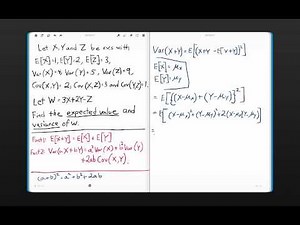 Let X, Y and Z be r.v.s with
E[X]=1, E[Y]=2, E[Z]=3,
Var(X)=8, Var(Y)=5, Var(Z)=9,
Cov(X,Y)=2, Cov(X,Z)=3 and Cov(Y,Z)=1.
Let W = 3X+2Y-Z
Find the expected value and
variance of W.
Fact 1: E[X+Y] = E[X]+E[Y]
Fact 2: Var(aX+bY)=a²Var(X)+b²Var(Y)
+2ab Cov(X,Y)
(a+b)²=a²+b²+2ab
Var(X+Y)=E[(X+Y-E[X+Y])²]
E[X]=μx
E[Y]=μy
=E[{(X-μx)+(Y-μy)}²]
=E[(X-μx)²+(Y-μy)²+2(X-μx)(Y-μy)